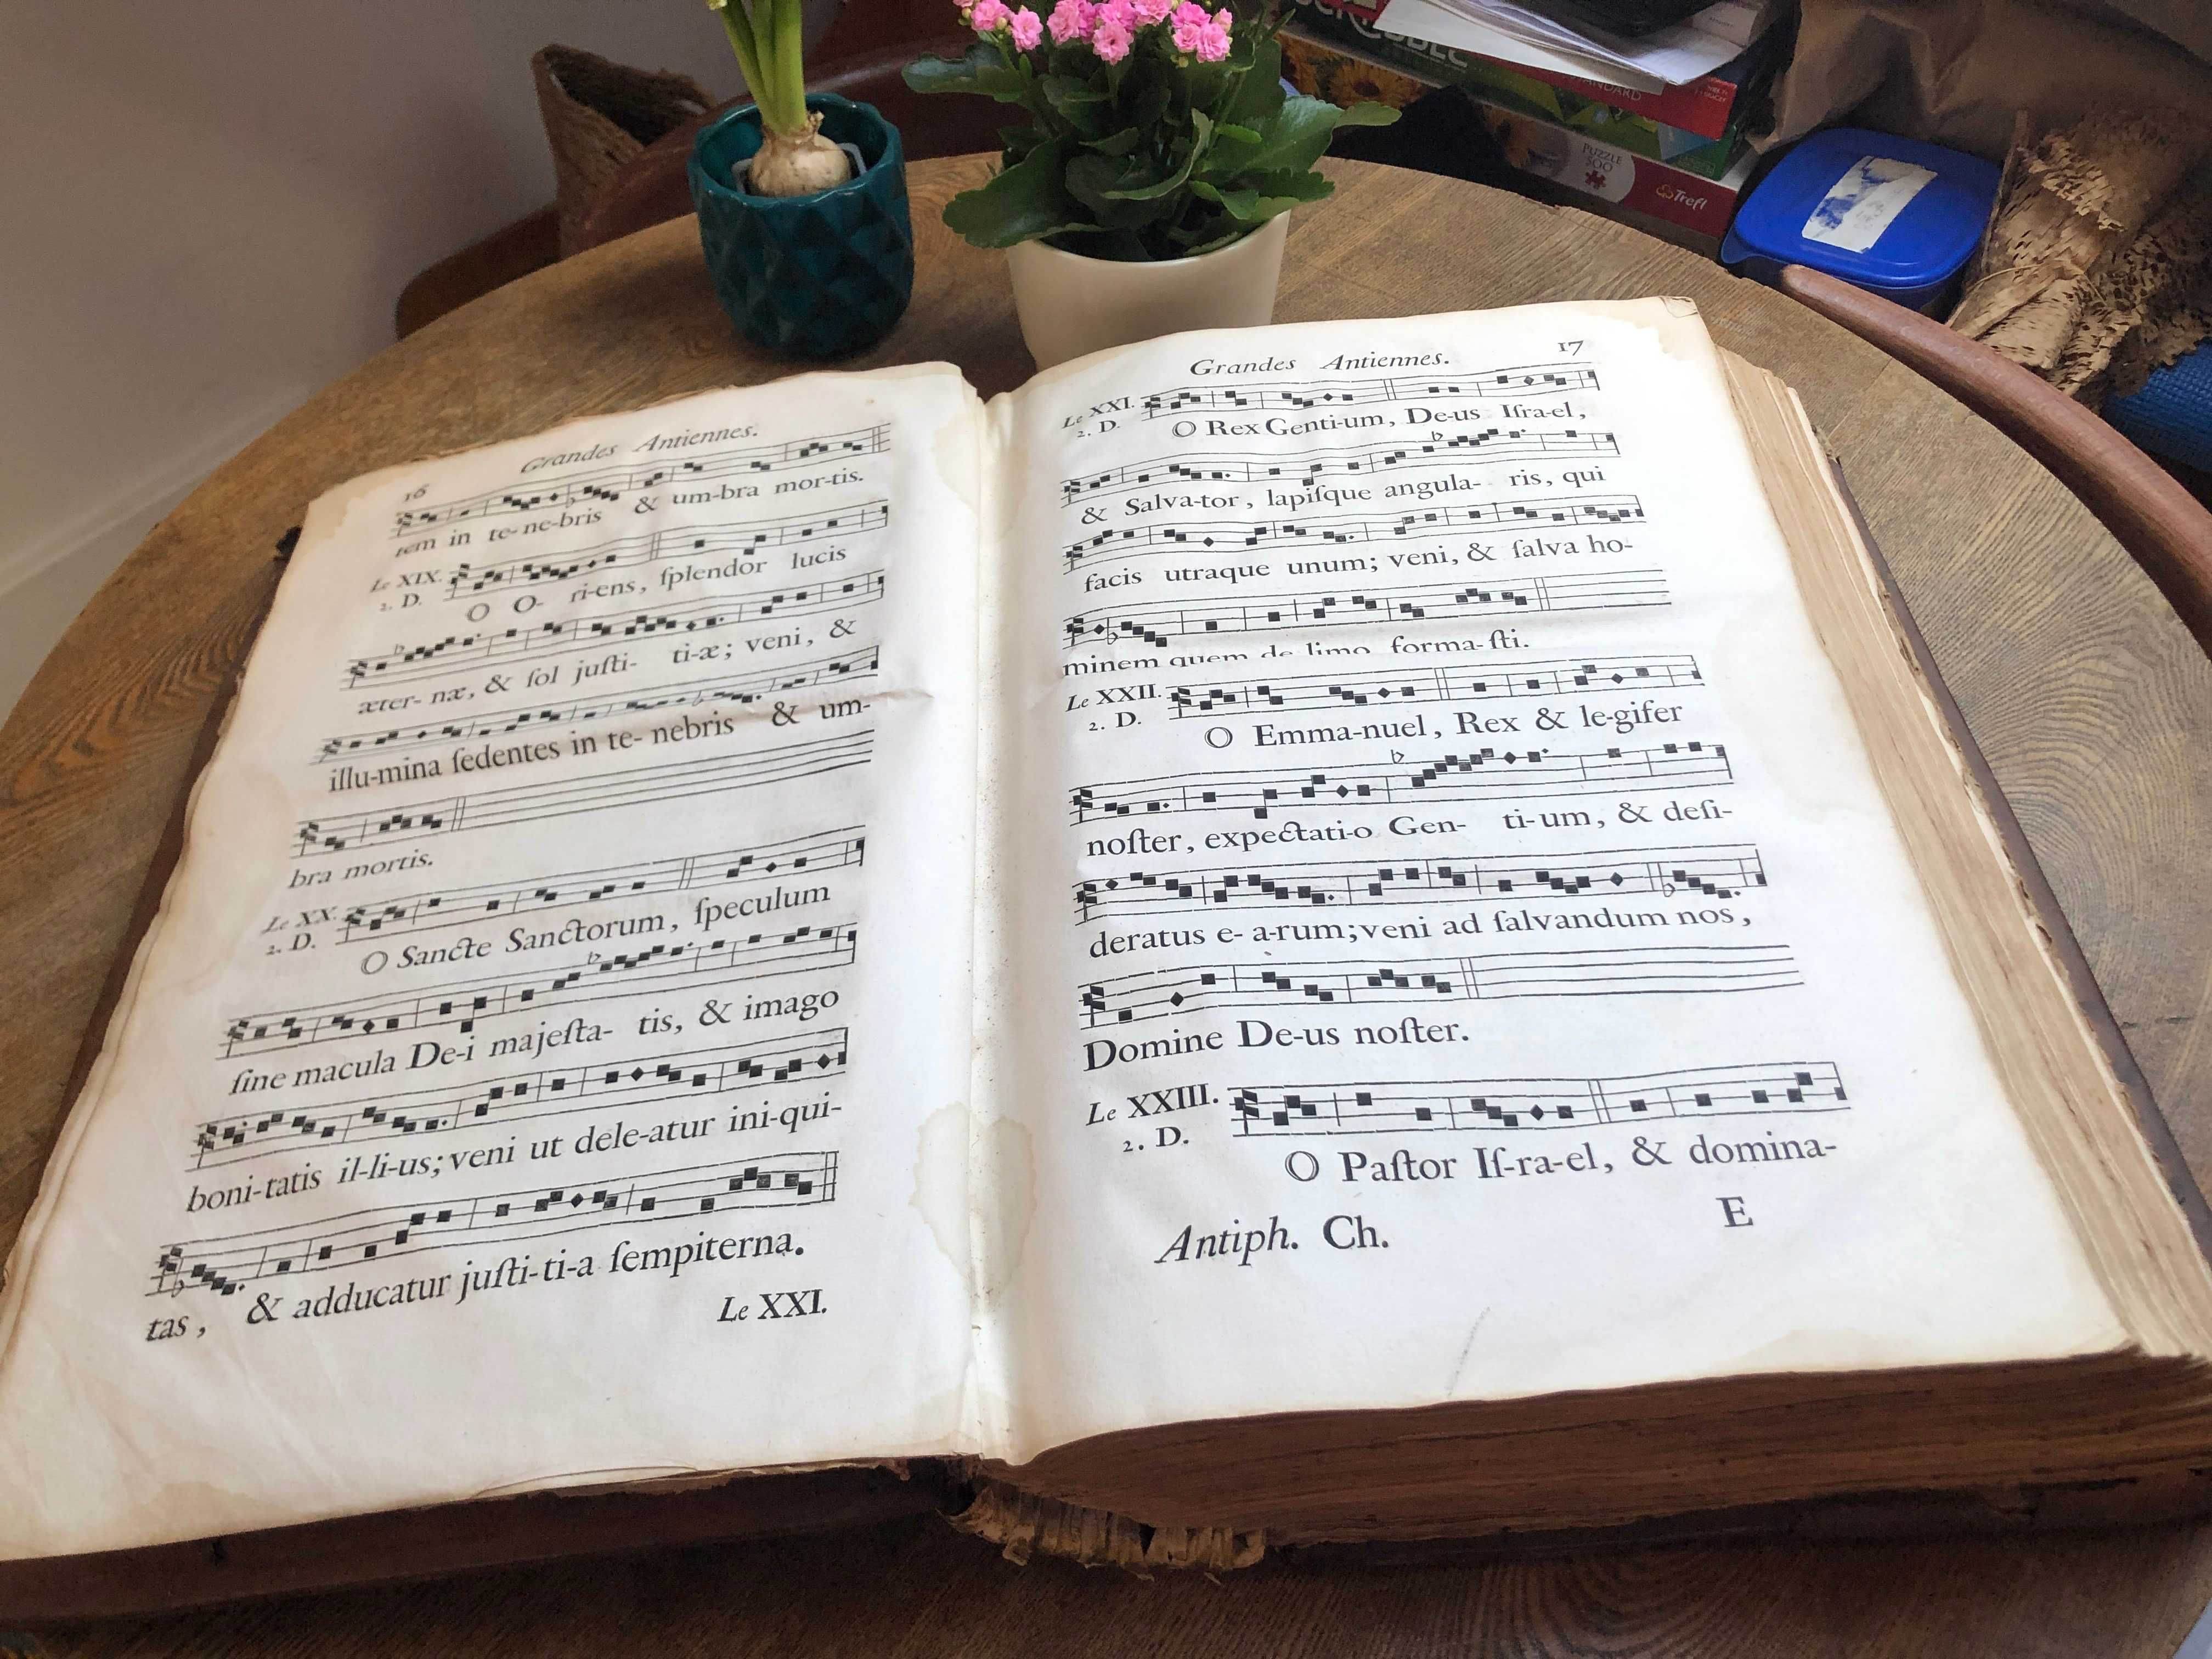 16
Grandes Antiennes.
tem in te-ne-bris & um-bra mor-tis.
Le XIX.
2. D.
O O- ri-ens, ſplendor lucis
æter- næ, & ſol juſti- ti-æ; veni, &
illu-mina ſedentes in te- nebris & um-
bra mortis.
Le XX.
2. D.
O Sancte Sanctorum, ſpeculum
ſine macula De-i majeſta- tis, & imago
boni-tatis il-li-us; veni ut dele-atur ini-qui-
tas, & adducatur juſti-ti-a ſempiterna.
Le XXI.
Grandes Antiennes.
17
Le XXI.
2. D.
O Rex Genti-um, De-us Iſra-el,
& Salva-tor, lapiſque angula- ris, qui
facis utraque unum; veni, & ſalva ho-
minem quem de limo forma-ſti.
Le XXII.
2. D.
O Emma-nuel, Rex & le-gifer
noſter, expectati-o Gen- ti-um, & deſi-
deratus e- a-rum; veni ad ſalvandum nos,
Domine De-us noſter.
Le XXIII.
2. D.
O Paſtor Iſ-ra-el, & domina-
Antiph. Ch.
E
STANDARD
PUZZLE
500
Trefl